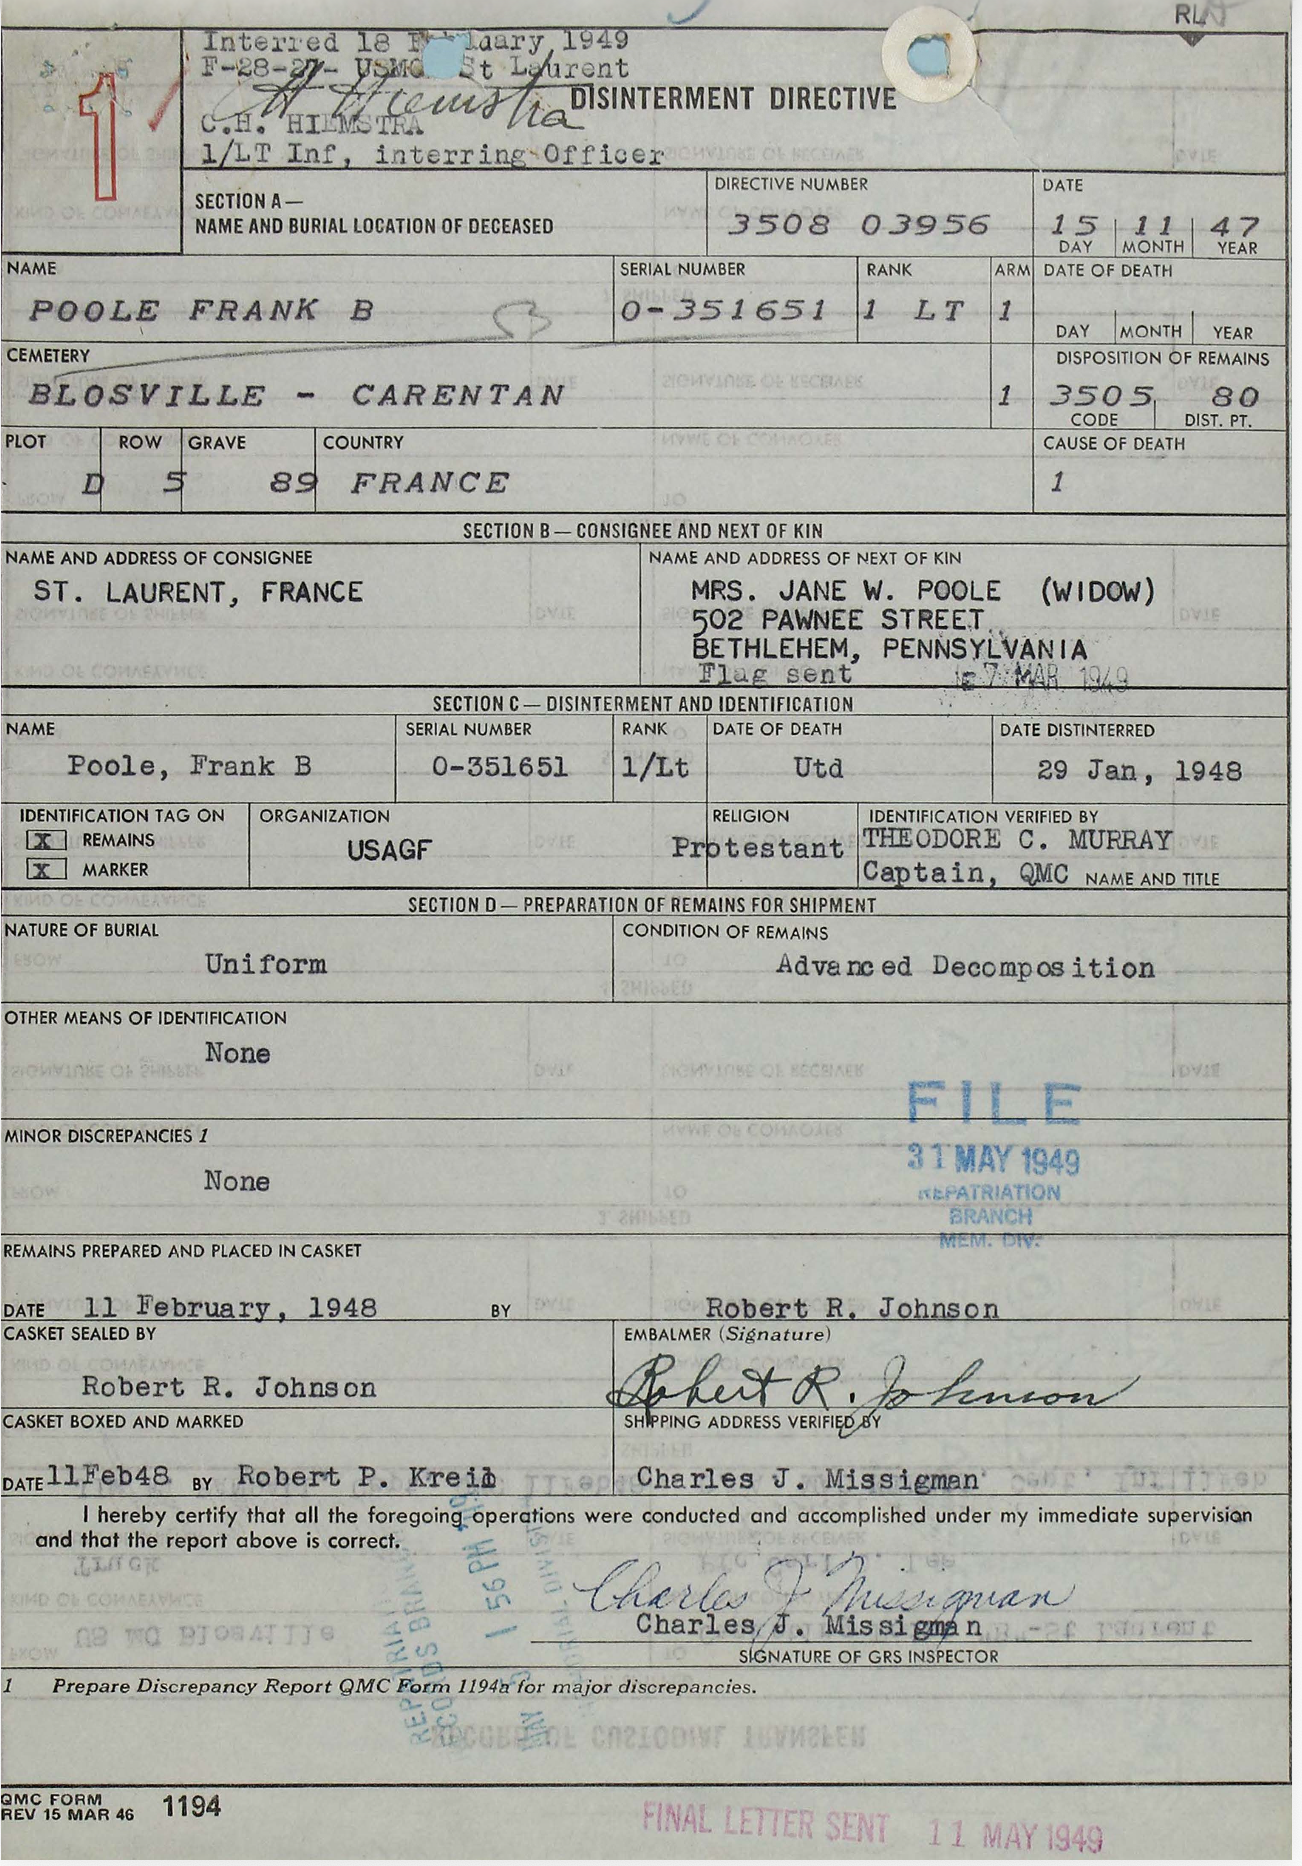 RL
Interred 18 F uary, 1949
F-28-27- USMC St Laurent
C.H. HIEMSTRA
1/LT Inf, interring Officer
DISINTERMENT DIRECTIVE
1
SECTION A—
NAME AND BURIAL LOCATION OF DECEASED
DIRECTIVE NUMBER
3508 03956
DATE
15 11 47
DAY MONTH YEAR
NAME
POOLE FRANK B
SERIAL NUMBER
O-351651
RANK
1 LT
ARM
1
DATE OF DEATH
DAY MONTH YEAR
CEMETERY
BLOSVILLE - CARENTAN
1
DISPOSITION OF REMAINS
3505 80
CODE DIST. PT.
PLOT ROW GRAVE COUNTRY
D 5 89 FRANCE
CAUSE OF DEATH
1
SECTION B — CONSIGNEE AND NEXT OF KIN
NAME AND ADDRESS OF CONSIGNEE
ST. LAURENT, FRANCE
NAME AND ADDRESS OF NEXT OF KIN
MRS. JANE W. POOLE (WIDOW)
502 PAWNEE STREET
BETHLEHEM, PENNSYLVANIA
Flag sent 7 MAR 1949
SECTION C — DISINTERMENT AND IDENTIFICATION
NAME
Poole, Frank B
SERIAL NUMBER
O-351651
RANK
1/Lt
DATE OF DEATH
Utd
DATE DISTINTERRED
29 Jan, 1948
IDENTIFICATION TAG ON
X REMAINS
X MARKER
ORGANIZATION
USAGF
RELIGION
Protestant
IDENTIFICATION VERIFIED BY
THEODORE C. MURRAY
Captain, QMC NAME AND TITLE
SECTION D — PREPARATION OF REMAINS FOR SHIPMENT
NATURE OF BURIAL
Uniform
CONDITION OF REMAINS
Advanced Decomposition
OTHER MEANS OF IDENTIFICATION
None
MINOR DISCREPANCIES 1
None
FILE
31 MAY 1949
REPATRIATION
BRANCH
MEM. DIV.
REMAINS PREPARED AND PLACED IN CASKET
DATE 11 February, 1948 BY Robert R. Johnson
CASKET SEALED BY
Robert R. Johnson
EMBALMER (Signature)
Robert R. Johnson
CASKET BOXED AND MARKED
DATE 11Feb48 BY Robert P. Kreib
SHIPPING ADDRESS VERIFIED BY
Charles J. Missigman
I hereby certify that all the foregoing operations were conducted and accomplished under my immediate supervision
and that the report above is correct.
Charles J Missigman
Charles J. Missigman
SIGNATURE OF GRS INSPECTOR
1 Prepare Discrepancy Report QMC Form 1194a for major discrepancies.
QMC FORM
REV 15 MAR 46 1194
FINAL LETTER SENT 11 MAY 1949